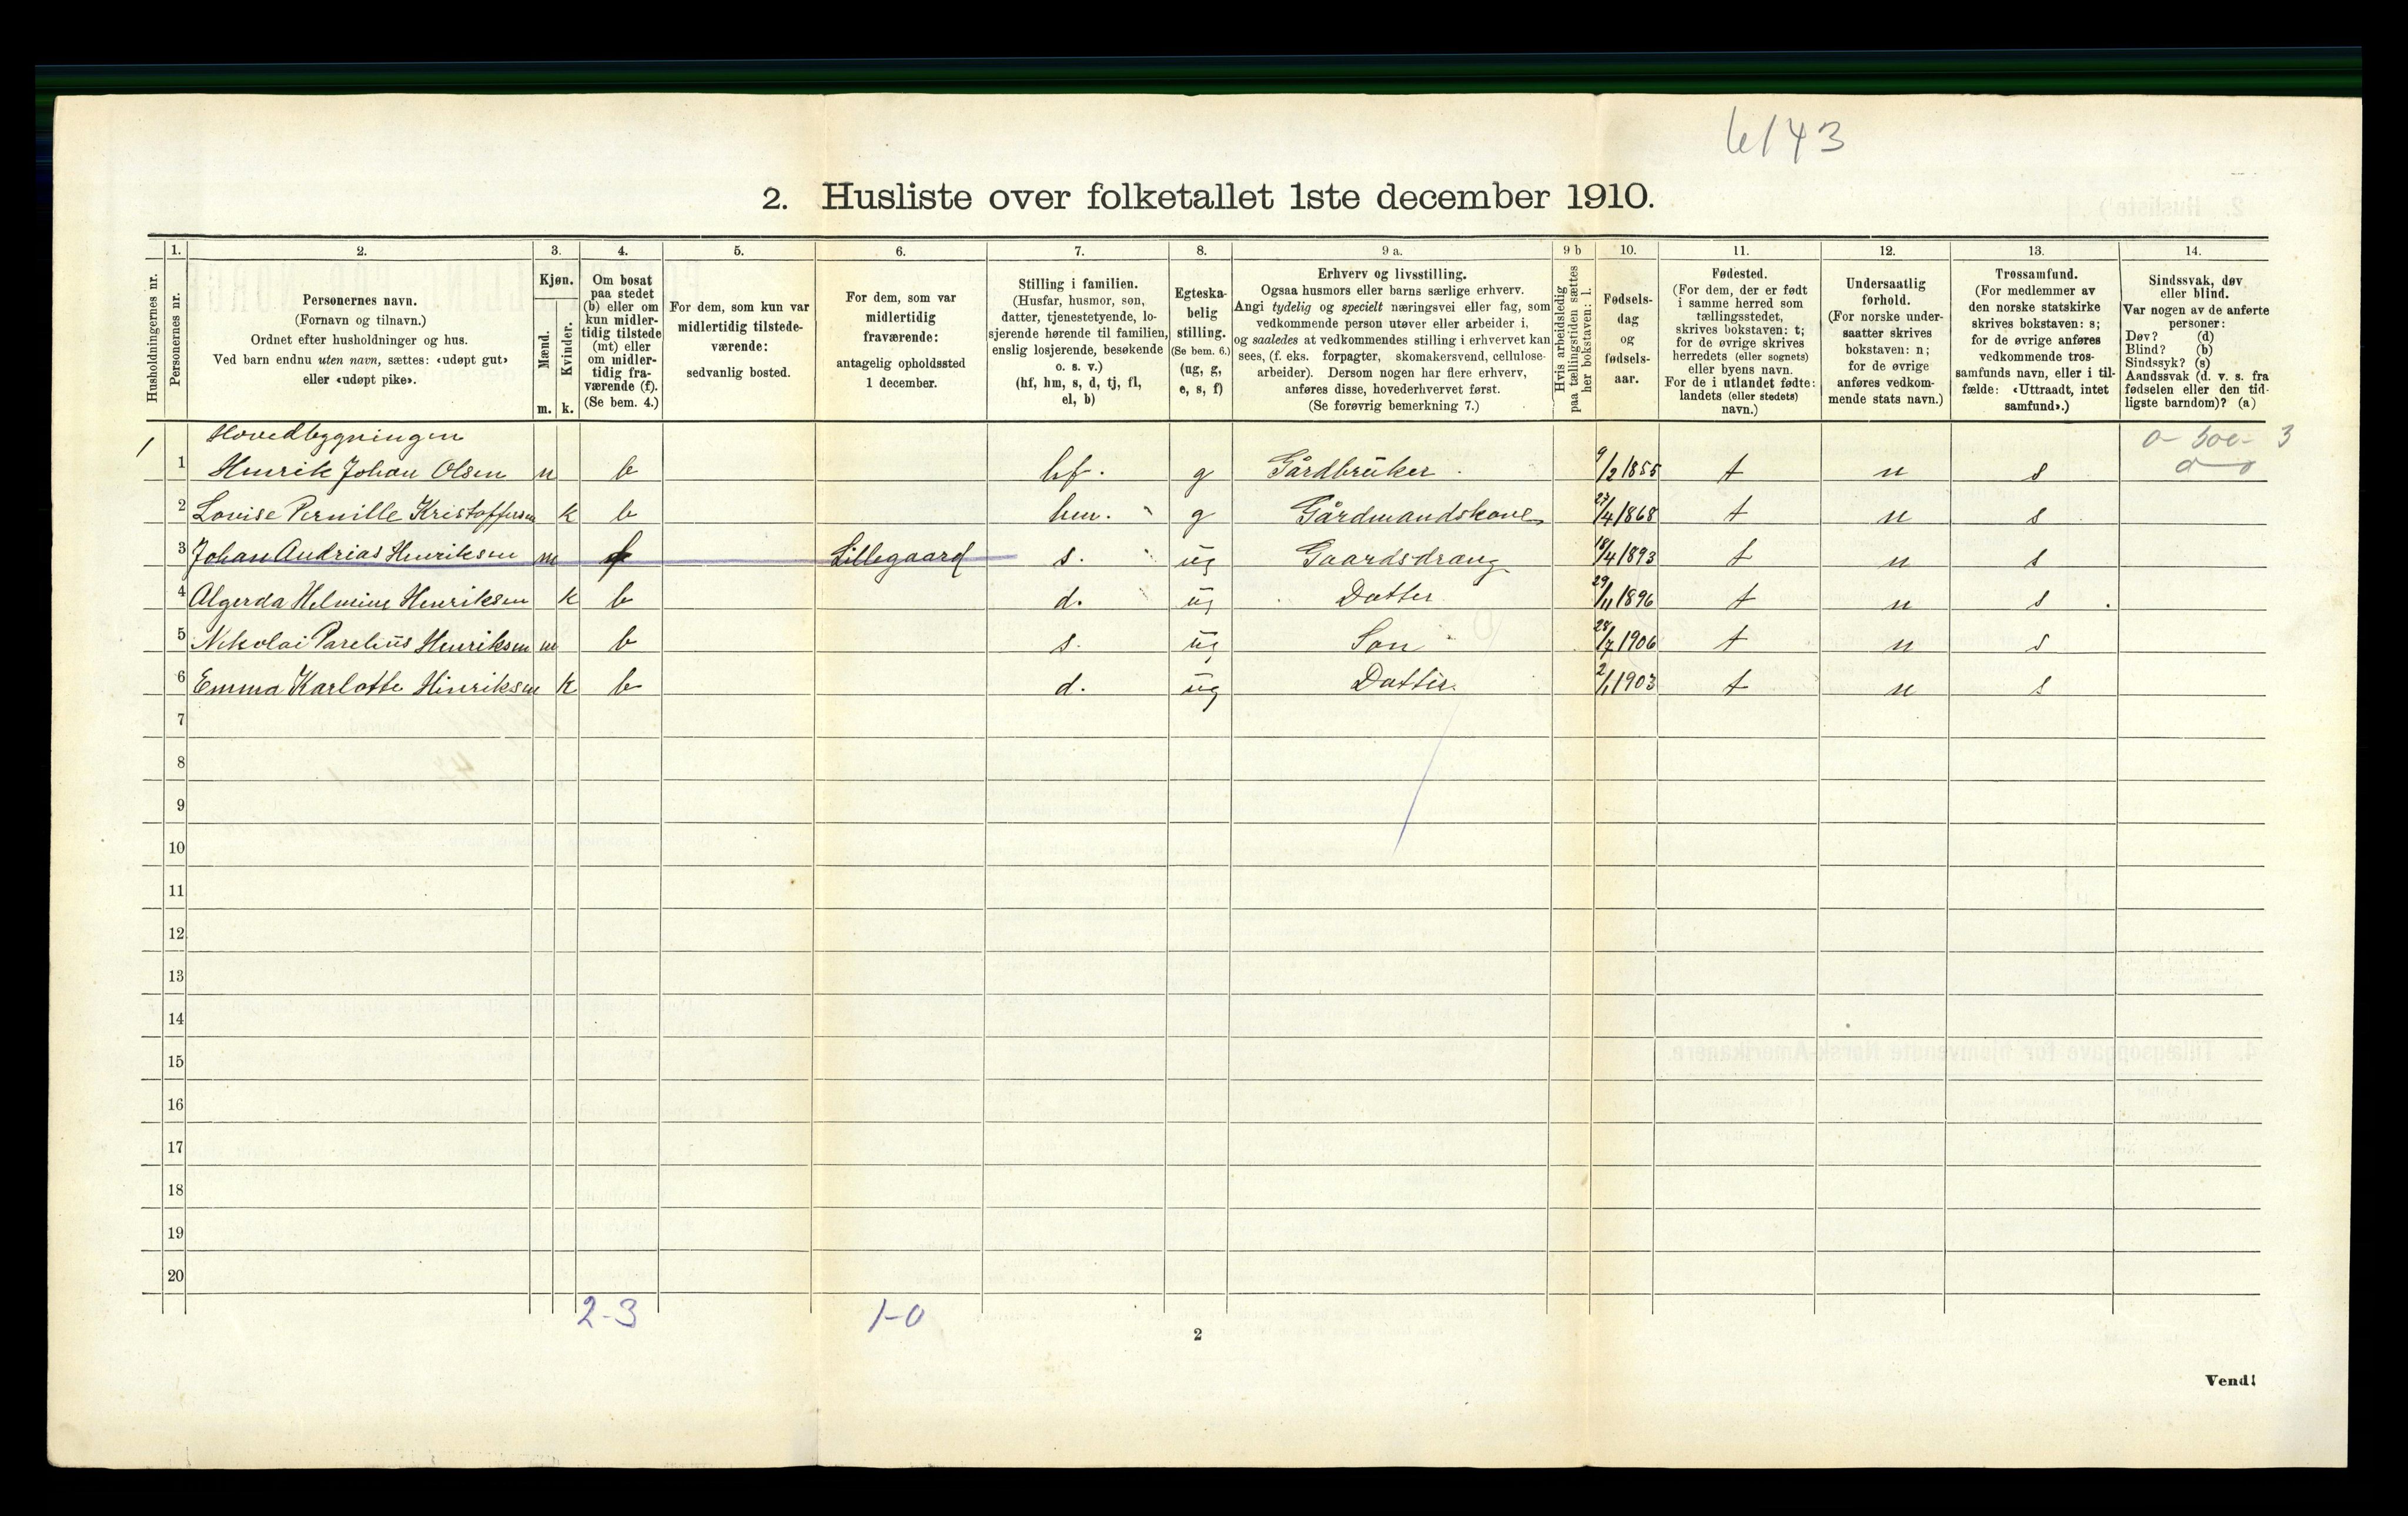 6143
2. Husliste over folketallet 1ste december 1910.
Husholdningernes nr.
1. Personernes nr.
2. Personernes navn.
(Fornavn og tilnavn.)
Ordnet efter husholdninger og hus.
Ved barn endnu uten navn, sættes: «udøpt gut»
eller «udøpt pike».
3. Kjøn.
Mænd. m.
Kvinder. k.
4. Om bosat
paa stedet
(b) eller om
kun midler-
tidig tilstede
(mt) eller
om midler-
tidig fra-
værende (f).
(Se bem. 4.)
5. For dem, som kun var
midlertidig tilstede-
værende:
sedvanlig bosted.
6. For dem, som var
midlertidig
fraværende:
antagelig opholdssted
1 december.
7. Stilling i familien.
(Husfar, husmor, søn,
datter, tjenestetyende, lo-
sjerende hørende til familien,
enslig losjerende, besøkende
o. s. v.)
(hf, hm, s, d, tj, fl,
el, b)
8. Egteska-
belig
stilling.
(Se bem. 6.)
(ug, g,
e, s, f)
9 a. Erhverv og livsstilling.
Ogsaa husmors eller barns særlige erhverv.
Angi tydelig og specielt næringsvei eller fag, som
vedkommende person utøver eller arbeider i,
og saaledes at vedkommendes stilling i erhvervet kan
sees, (f. eks. forpagter, skomakersvend, cellulose-
arbeider). Dersom nogen har flere erhverv,
anføres disse, hovederhvervet først.
(Se forøvrig bemerkning 7.)
9 b Hvis arbeidsledig
paa tællingstiden sættes
her bokstaven: l.
10. Fødsels-
dag
og
fødsels-
aar.
11. Fødested.
(For dem, der er født
i samme herred som
tællingsstedet,
skrives bokstaven: t;
for de øvrige skrives
herredets (eller sognets)
eller byens navn.
For de i utlandet fødte:
landets (eller stedets)
navn.)
12. Undersaatlig
forhold.
(For norske under-
saatter skrives
bokstaven: n;
for de øvrige
anføres vedkom-
mende stats navn.)
13. Trossamfund.
(For medlemmer av
den norske statskirke
skrives bokstaven: s;
for de øvrige anføres
vedkommende tros-
samfunds navn, eller i til-
fælde: «Uttraadt, intet
samfund».)
14. Sindssvak, døv
eller blind.
Var nogen av de anførte
personer:
Døv? (d)
Blind? (b)
Sindssyk? (s)
Aandssvak (d. v. s. fra
fødselen eller den tid-
ligste barndom)? (a)
Hovedbygningen
1 1 Henrik Johan Olsen m b hf. g Gårdbrüker 9/2 1855 t n s
2 Lovise Pernille Kristoffersen k b hm. g Gårdmandskone 27/4 1868 t n s
3 Johan Andrias Henriksen m f Lillegaard s. ug Gaardsdrang 18/4 1893 t n s
4 Algerda Helmine Henriksen k b d. ug Datter 29/11 1896 t n s
5 Nikolai Parelius Henriksen m b s. ug Søn 28/7 1906 t n s
6 Emma Karlotte Hinriksen k b d. ug Datter. 2/1 1903 t n s
7
8
9
10
11
12
13
14
15
16
17
18
19
20
2-3 1-0
2
Vend!